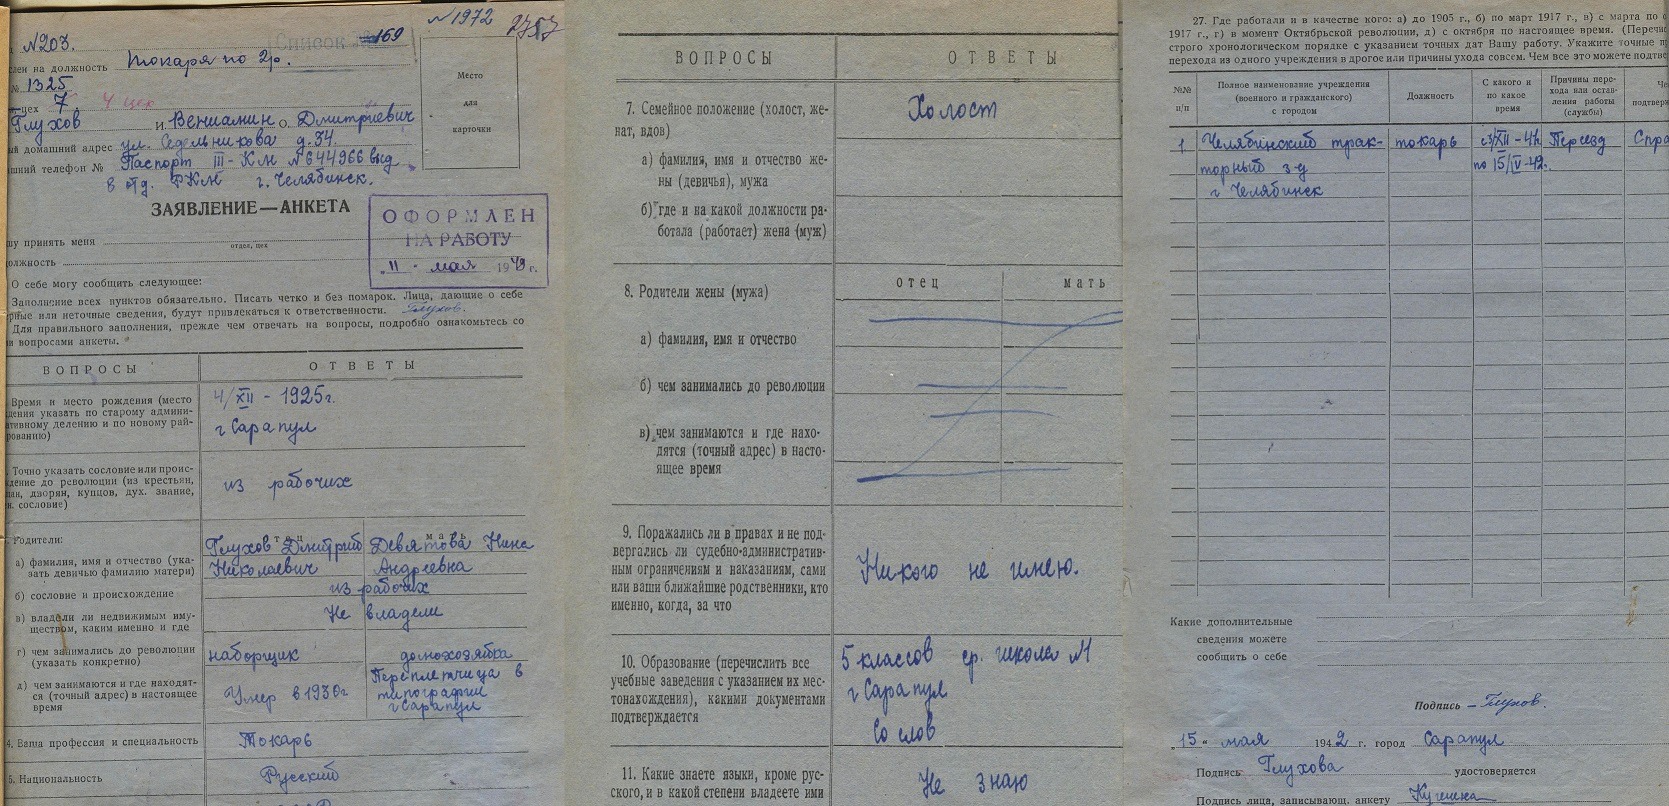 №203.
Список № 169
№1972
2757
слен на должность токаря по 2р.
№ 1325
цех 7 4 цех
Глухов И. Вениамин О. Дмитриевич
ый домашний адрес ул. Седельникова д.34.
шний телефон № Паспорт III-КМ №644966 выд
в отд. РКМ г. Челябинск.
Место
для
карточки
ЗАЯВЛЕНИЕ—АНКЕТА
ОФОРМЛЕН
НА РАБОТУ
„11 - мая 1942 г.
шу принять меня
отдел, цех
олжность
О себе могу сообщить следующее:
Заполнение всех пунктов обязательно. Писать четко и без помарок. Лица, дающие о себе
рные или неточные сведения, будут привлекаться к ответственности. Глухов.
Для правильного заполнения, прежде чем отвечать на вопросы, подробно ознакомьтесь со
и вопросами анкеты.
ВОПРОСЫ ОТВЕТЫ
Время и место рождения (место
дения указать по старому админи-
ативному делению и по новому рай-
рованию)
4/XII - 1925г.
г Сарапул
Точно указать сословие или проис-
ждение до революции (из крестьян,
щан, дворян, купцов, дух. звание,
н. сословие)
из рабочих
Родители:
отец мать
а) фамилия, имя и отчество (ука-
зать девичью фамилию матери)
Глухов Дмитрий
Николаевич
Девятова Нина
Андреевна
б) сословие и происхождение
из рабочих
в) владели ли недвижимым иму-
ществом, каким именно и где
Не владели
г) чем занимались до революции
(указать конкретно)
наборщик
домохозяйка
д) чем занимаются и где находят-
ся (точный адрес) в настоящее
время
Умер в 1930г
Переплетчица в
типографии
г Сарапул
4. Ваша профессия и специальность Токарь
5. Национальность Русский
ВОПРОСЫ ОТВЕТЫ
7. Семейное положение (холост, же-
нат, вдов)
Холост
а) фамилия, имя и отчество же-
ны (девичья), мужа
б) где и на какой должности ра-
ботала (работает) жена (муж)
отец мать
8. Родители жены (мужа)
а) фамилия, имя и отчество
б) чем занимались до революции
в) чем занимаются и где нахо-
дятся (точный адрес) в насто-
ящее время
9. Поражались ли в правах и не под-
вергались ли судебно-административ-
ным ограничениям и наказаниям, сами
или ваши ближайшие родственники, кто
именно, когда, за что
Никого не имею.
10. Образование (перечислить все
учебные заведения с указанием их мес-
тонахождения), какими документами
подтверждается
5 классов ср. школа №1
г Сарапул
Со слов
11. Какие знаете языки, кроме рус-
ского, и в какой степени владеете ими
Не знаю
27. Где работали и в качестве кого: а) до 1905 г., б) по март 1917 г., в) с марта по о
1917 г., г) в момент Октябрьской революции, д) с октября по настоящее время. (Перечис
строго хронологическом порядке с указанием точных дат Вашу работу. Укажите точные п
перехода из одного учреждения в другое или причины ухода совсем. Чем все это можете подтве
№№
п/п
Полное наименование учреждения
(военного и гражданского)
с городом
Должность
С какого и
по какое
время
Причины пере-
хода или остав-
ления работы
(службы)
Че
подтверж
1 Челябинский трак- токарь с3/XII - 41 Переезд Спра
торный з-д по 15/IV-42г.
г Челябинск
Какие дополнительные
сведения можете
сообщить о себе
Подпись – Глухов.
„15" мая 1942 г. город Сарапул
Подпись Глухова удостоверяется
Подпись лица, записывающ. анкету